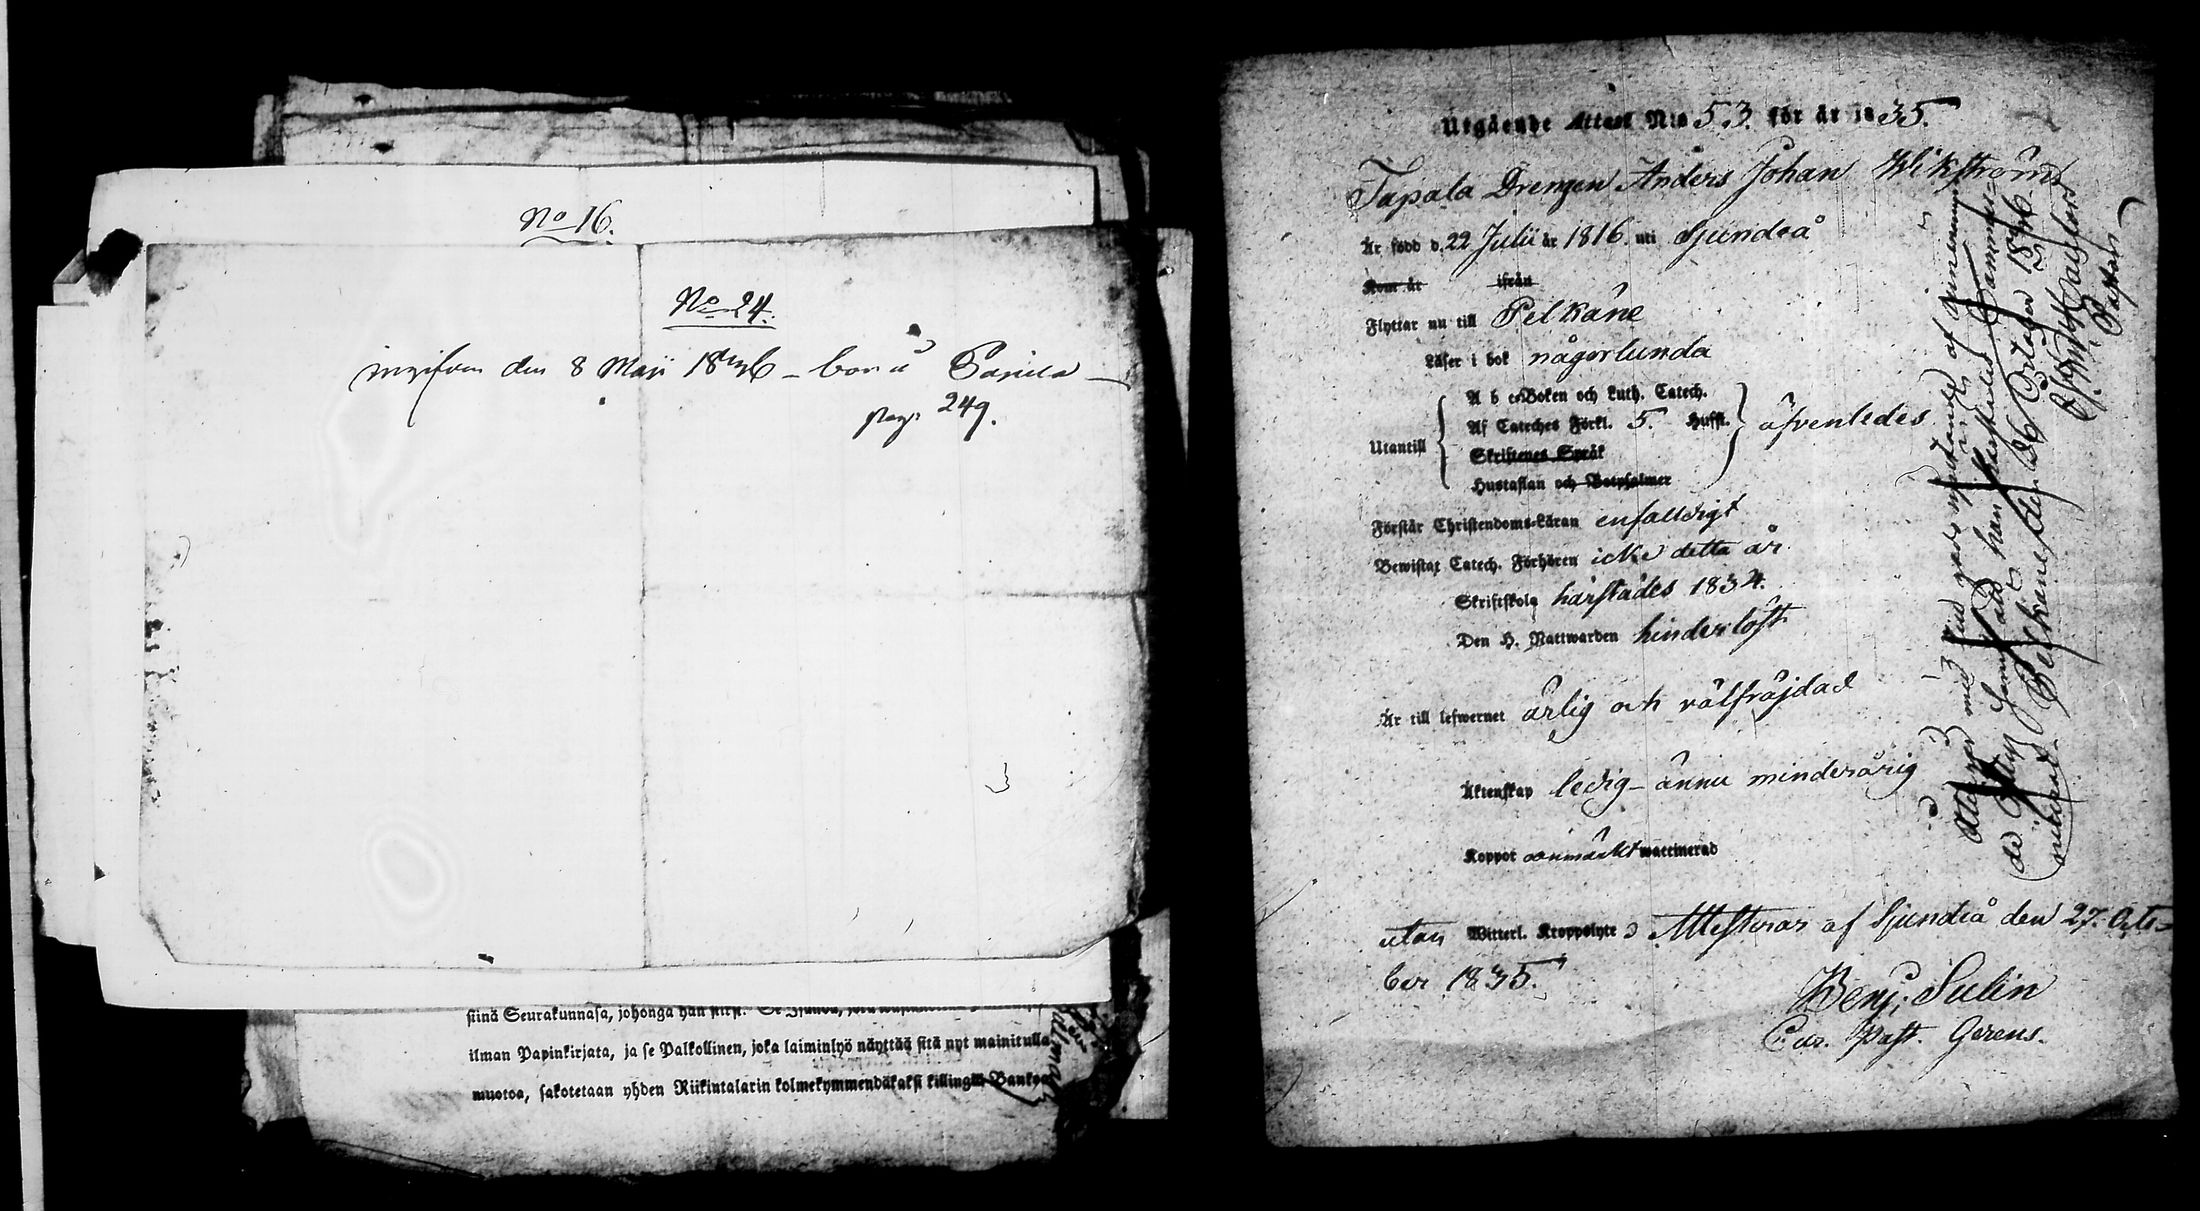 No 16.
No 24.
ingifven den 8 Maji 1836 – bor i
pag. 249.
stinä Seurakunnasa, johonga hän siirsi.
ilman Papinkirjata, ja se Palkollinen, joka laiminlyö näyttää sitä nyt mainitulla
muotoa, sakotetaan yhden Riikintalarin kolmekymmendäkaksi killingiä Banko
Utgående Attest N:o 53. för år 1835.
Tapala Drengen Anders Johan Wikström
Är född d. 22 Julii år 1816 uti Sjundeå
Kom år ifrån
Flyttar nu till Pelkäne
Läser i bok någorlunda
A b c-Boken och Luth. Catech.
Af Cateches Förkl. 5. Hufst.
Utantill äfvenledes
Skriftenes Språk
Hustaflan och Botpsalmer
Förstår Christendoms-Läran enfaldigt
Bewistat Catech. Förhören icke detta år
Skriftskola härstädes 1834.
Den H. Nattwarden hinderlöst
Är till lefwernet ärlig och välfräjdad
Äktenskap ledig – ännu minderårig
Koppor vaccinerad
utan Witterl. Kroppslyte Attesterar af Sjundeå den 27. Octo-
ber 1835.
Benj. Sulin
Cur. Past. Gerens.
med af
han
Pelkäne den 26 October 1836
Pastor